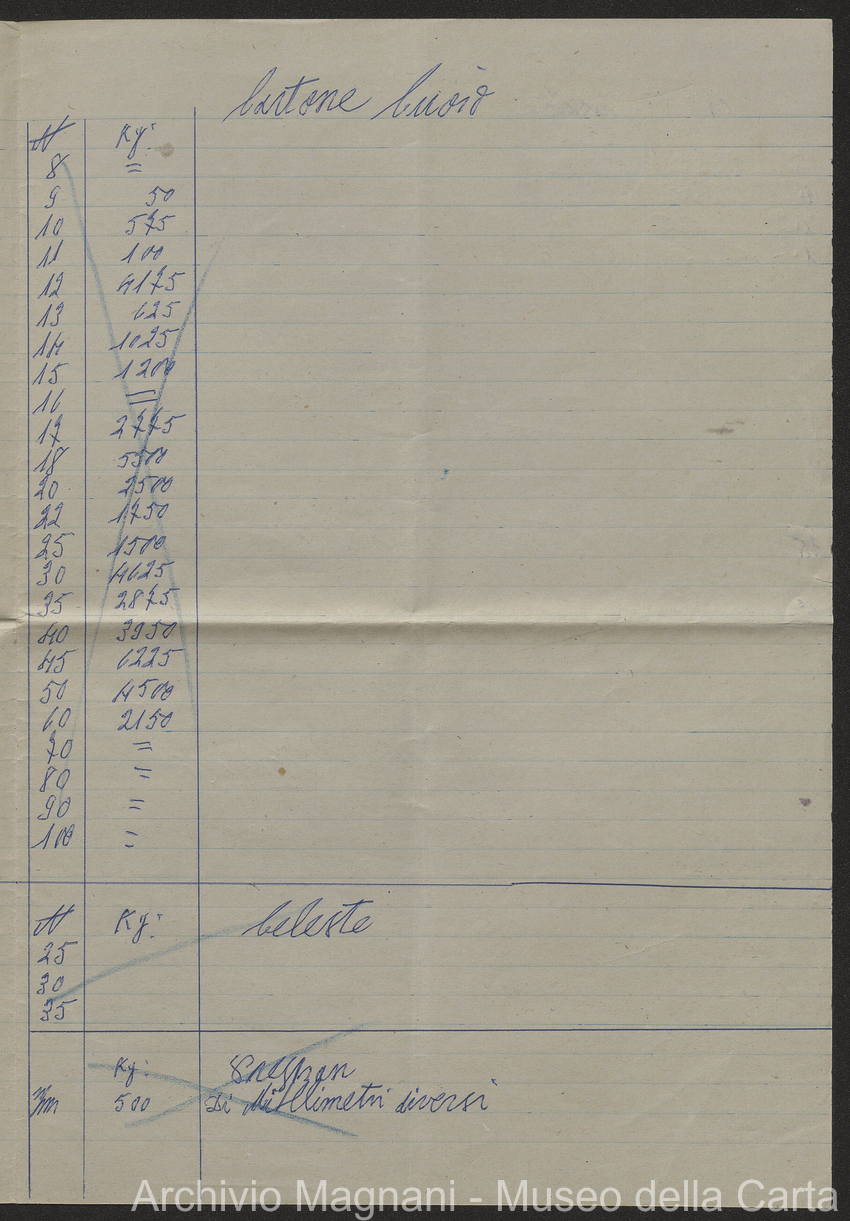 Cartone Cuoio
N Kg:
8 =
9 50
10 575
11 100
12 4175
13 625
14 1025
15 1200
16 =
17 2775
18 5500
20 2500
22 1750
25 1500
30 4625
35 2875
40 3950
45 6225
50 4500
60 2150
70 =
80 =
90 =
100 =
N Kg: Celeste
25
30
35
Kg: Presspan
m/m 500 Di Millimetri diversi
Archivio Magnani - Museo della Carta